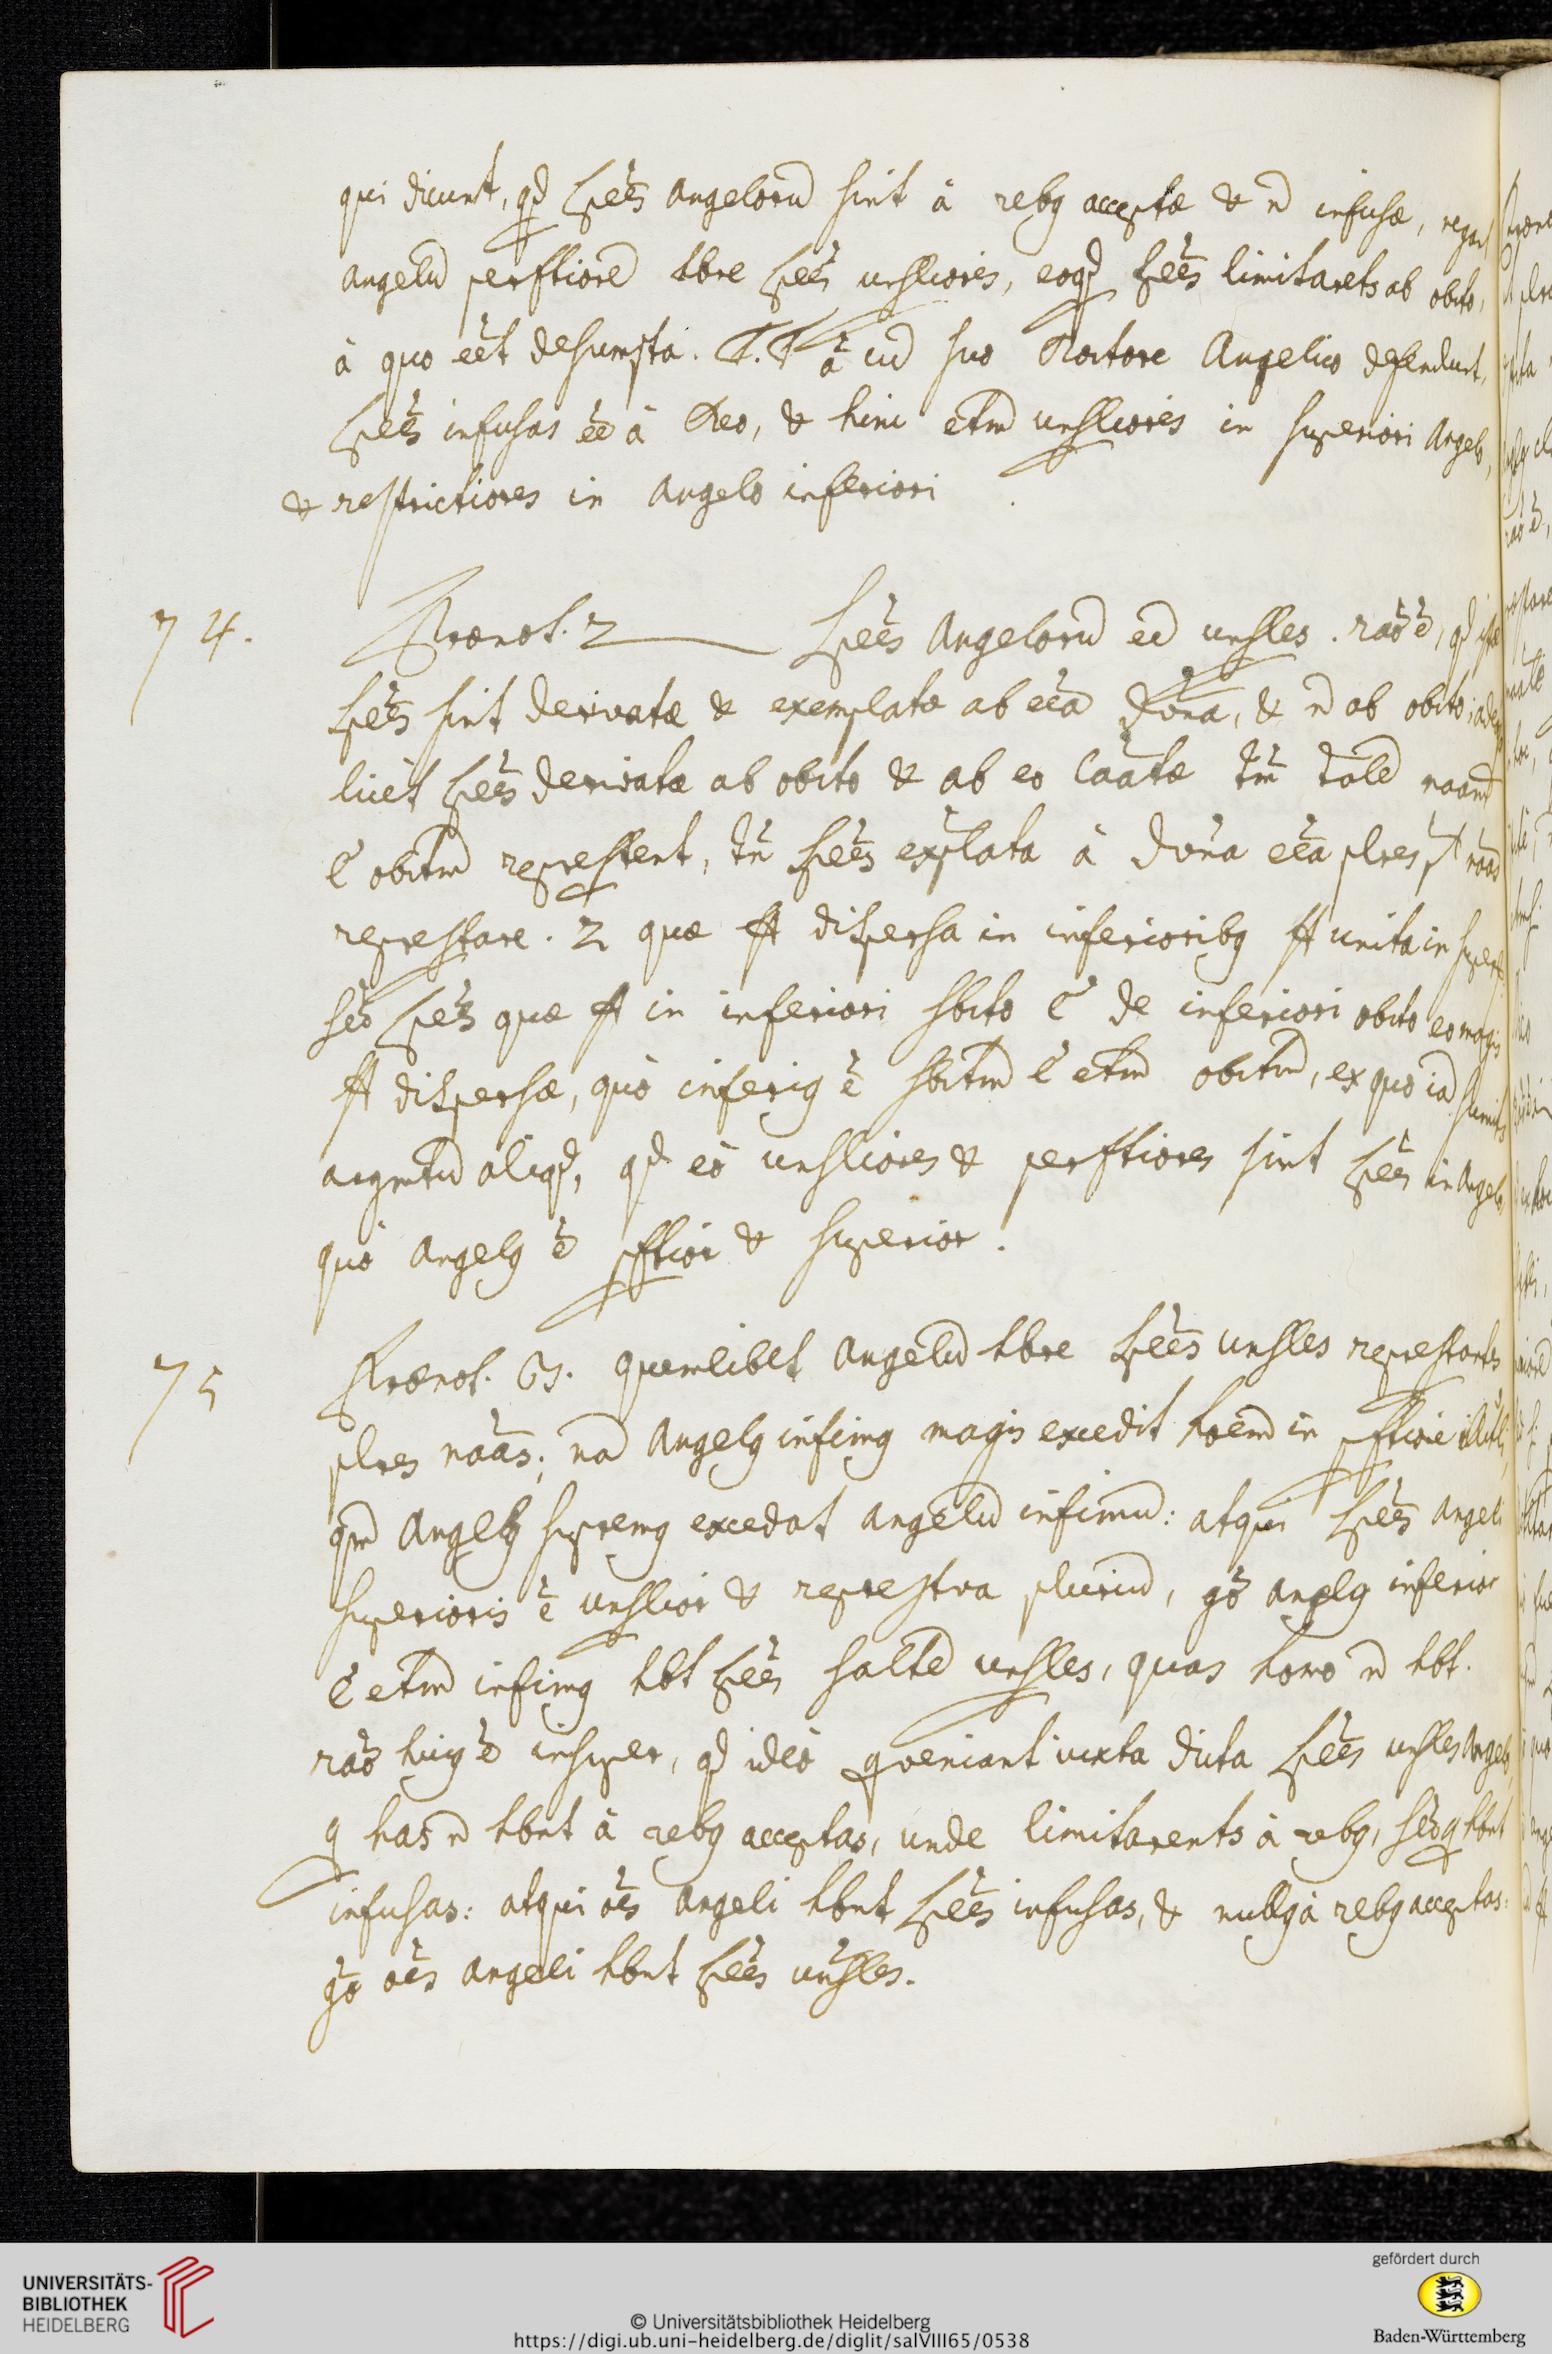 qui dicunt, qd spẽes Angelorũ sint à rebg acceptæ & ñ infusæ, negant
angelũ perfctiorẽ hbre spẽes unsliores, eoqd spẽes limitarets ab obito,
à quo eẽt desumpta. T.T ã cũ suo Doctore Angelico defendunt,
spẽes infusas eẽ à Deo, & hinc etm unsliores in superiori Angelo,
& restrictiores in angelo inferiori
74. Prænot. 2 Spẽes Angelorũ eẽ unsles. raõ ẽ, qd istæ
spẽes sint derivatæ & exemplatæ ab eẽa dvna, & ñ ab obito,
licet spẽes derivatæ ab obito & ab eo caatæ tm̃ talẽ naam
l obitm represtent, tñ spẽes explata à dvna eẽa plres pt naas
represtare. 2 quæ st dispersa in inferioribg st unita in
sẽo spẽes quæ st in inferiori sbito l de inferiori obito eo magis
st dispersæ, quò inferig ẽ sbitm l etm obitm, ex quo iã sumits
argmtũ aliqd, qd eò unsliores & perfctiores sint spẽes in Angelo,
quò angelg ẽ pfctior & superior.
75 Prænot. 3. quemlibet Angelũ hbre spẽes unsles represtantes
plres naas; nã Angelg infimg magis excedit hoem in pfctione
qm Angelg supremg excedat angelũ infimũ: atqui spẽes angeli
superioris ẽ unslior & represtva plurium, gõ angelg inferior
l etm infimg hbt spẽes saltẽ unsles, quas homo ñ hbt.
raõ huig ẽ insuper, qd ideò qveniant iuxta dicta spẽes unsles Angelo,
q has ñ hbnt à rebg acceptas, unde limitarents à rebg, sẽo q hbnt
infusas: atqui oẽs angeli hbnt spẽes infusas, & nullg à rebg acceptas:
gõ oẽs angeli hbnt spẽes unsles.
UNIVERSITÄTS-
BIBLIOTHEK
HEIDELBERG
© Universitätsbibliothek Heidelberg
https://digi.ub.uni-heidelberg.de/diglit/salVIII65/0538
gefördert durch
Baden-Württemberg